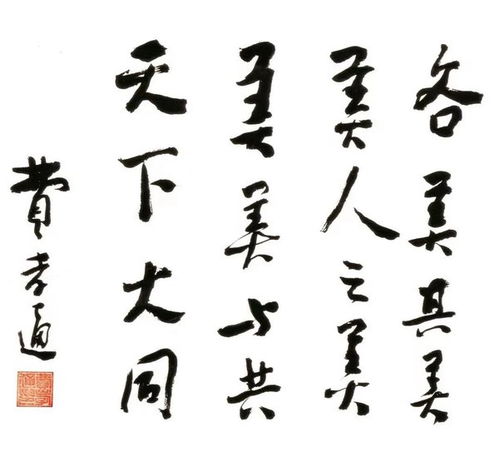 各美其美
美人之美
美美与共
天下大同
費孝通